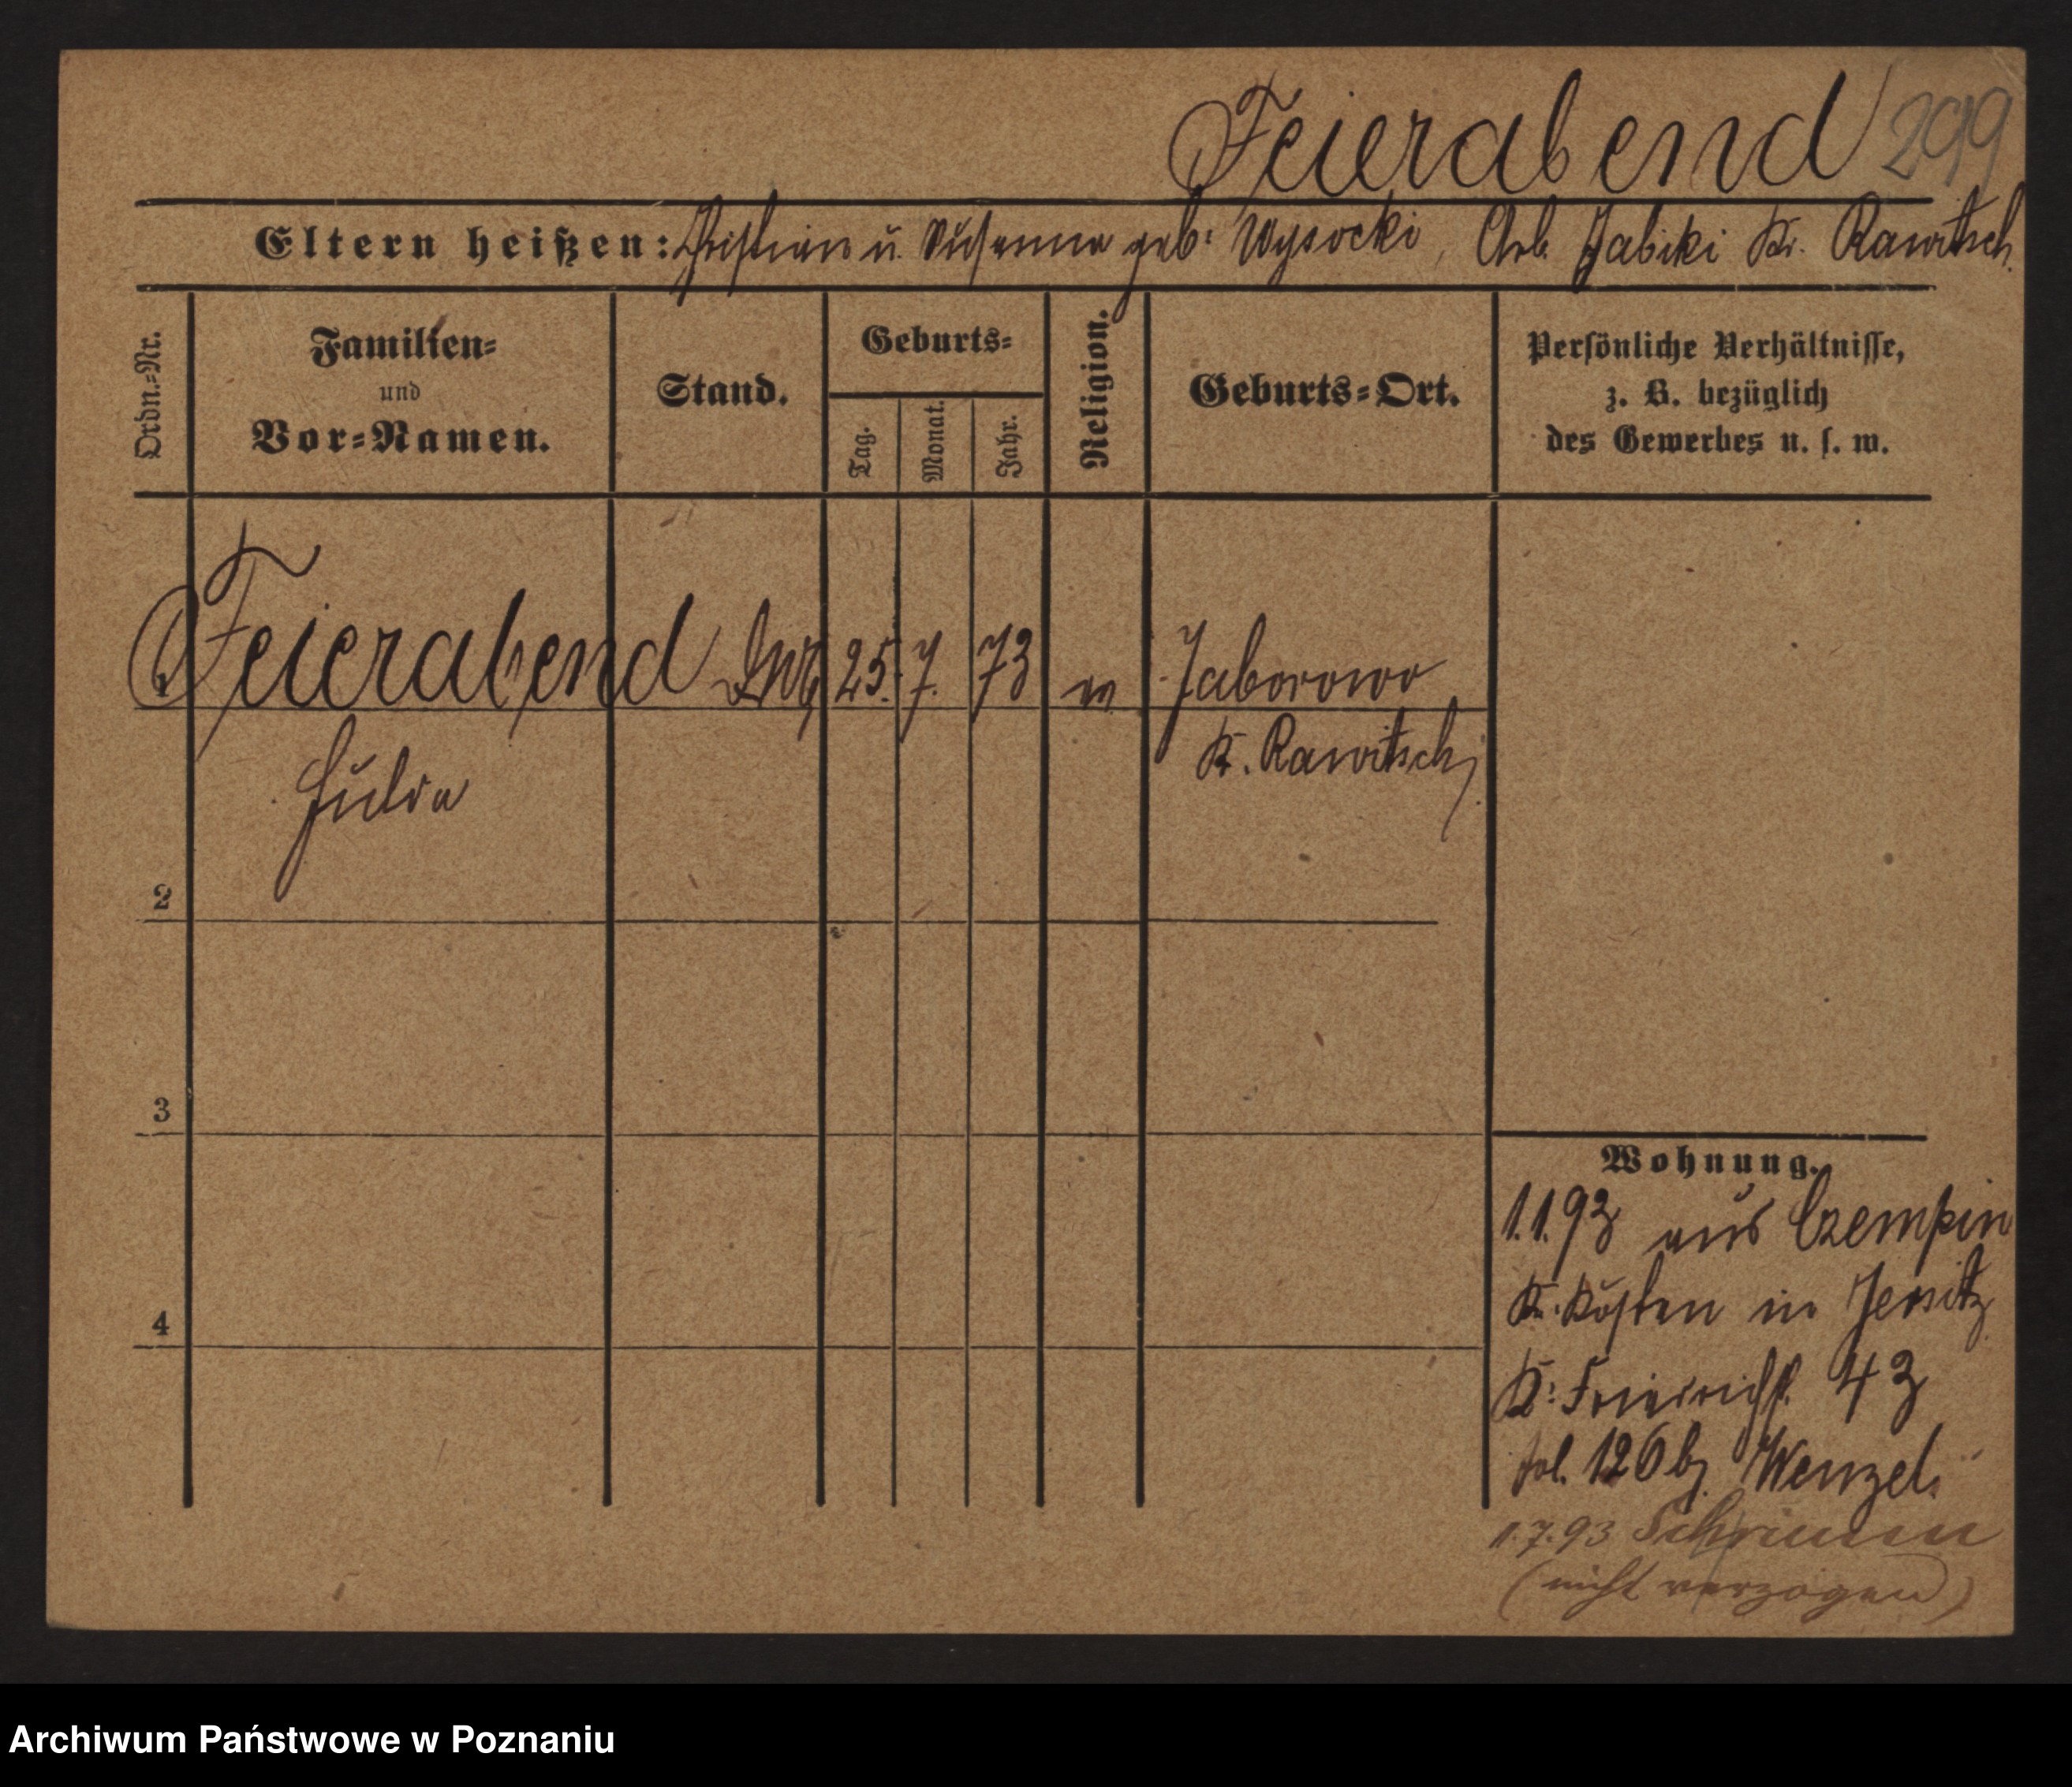 Feierabend 299
Eltern heißen: Christian u. Susanna geb: Wysocki, Arb. Kr. Rawitsch.
Ordn.-Nr.
Familien-
und
Vor-Namen.
Stand.
Geburts-
Tag.
Monat.
Jahr.
Religion.
Geburts-Ort.
Persönliche Verhältnisse,
z. B. bezüglich
des Gewerbes u. s. w.
Feierabend 25. 7. 73 Jaborowo
Hulda Kr. Rawitsch
2
3
4
Wohnung.
1.1.93 aus Czempin
Kr. Kosten in Jersitz
Kr: Friedrichst. 43
fol. 126 b. Wenzel.
1.7.93 Schrimm
(nicht verzogen)
Archiwum Państwowe w Poznaniu